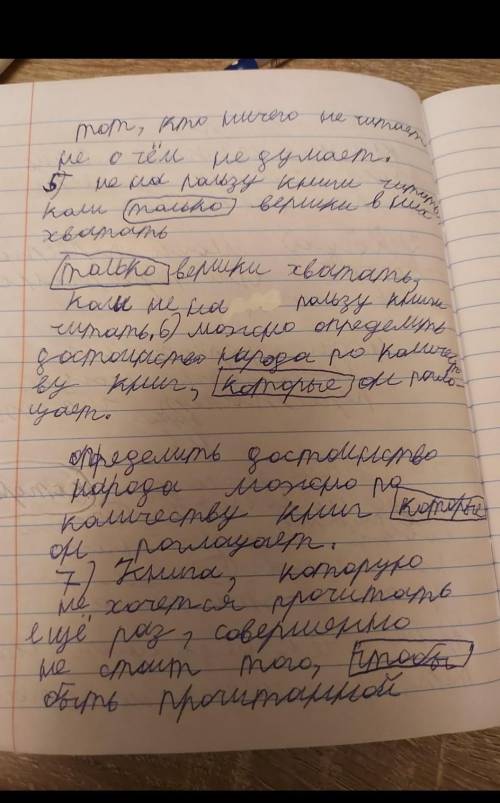 тот, кто ничего не читает
не о чём не думает.
5) не на пользу книги читать,
коли только вершки в них
хватать
только вершки хватать,
коли не на пользу книги
читать. 6) можно определить
достоинство народа по количест
ву книг, которые он погло-
щает.
определить достоинство
народа можно по
количеству книг которые
он поглащает.
7) Книга, которую
не хочется прочитать
ещё раз, совершенно
не стоит того, чтобы
быть прочитанной